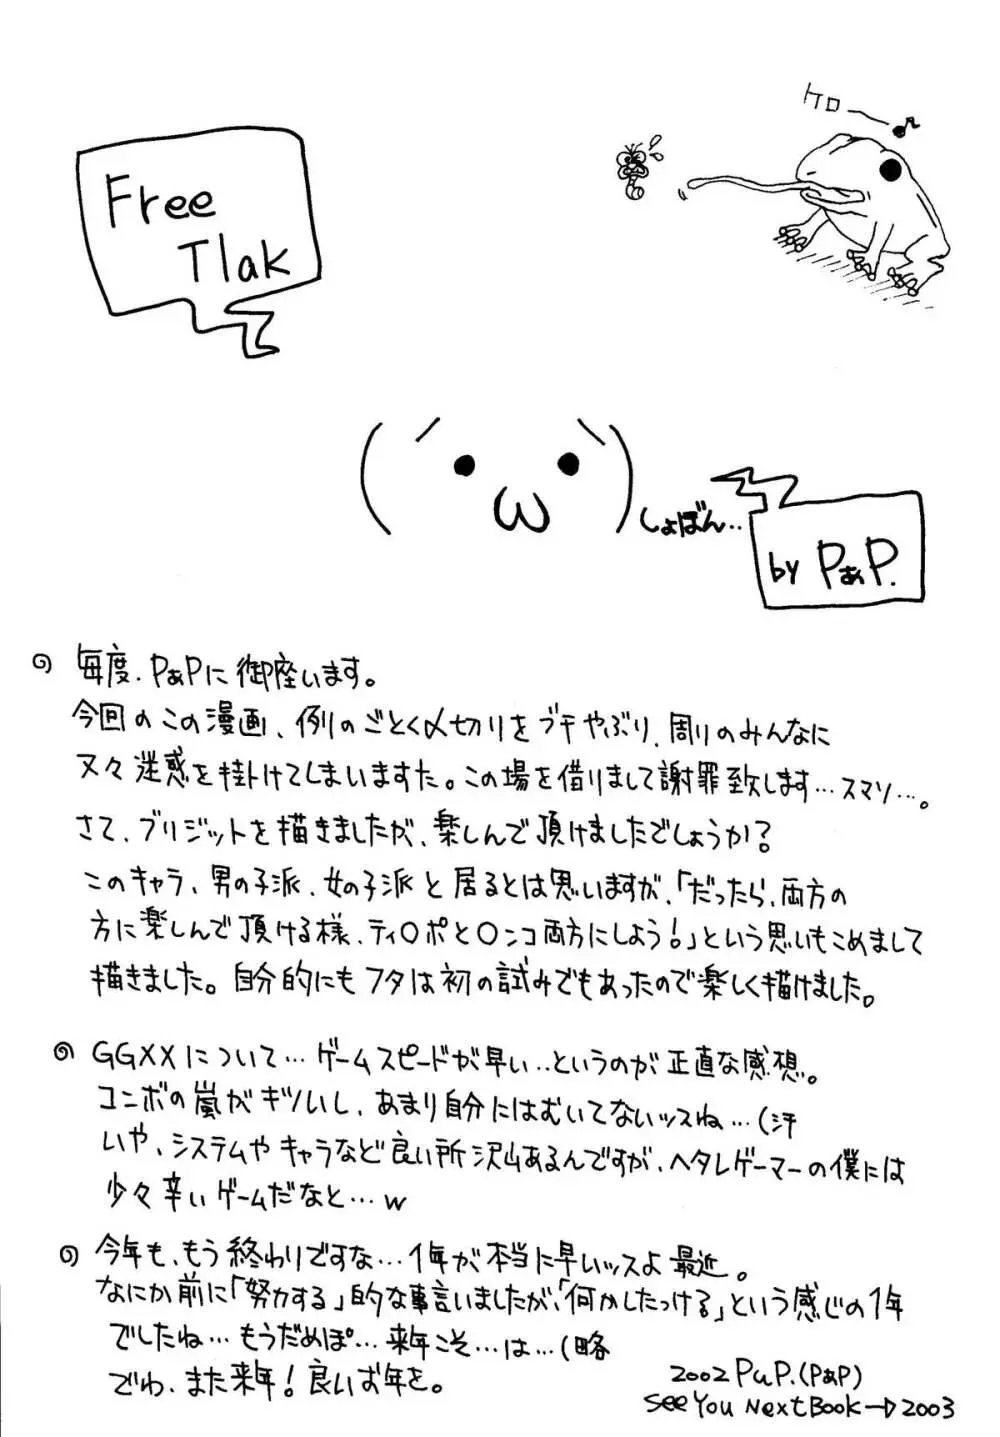 ケロ
Free
Tlak
しょぼん..
by PぁP.
毎度.PぁPに御座います。
今回のこの漫画、例のごとく〆切りをブチやぶり、周りのみんなに
又々迷惑を掛けてしまいますた。この場を借りまして謝罪致します…スマソ…。
さて、ブリジットを描きましたが、楽しんで頂けましたでしょうか?
このキャラ、男の子派、女の子派と居るとは思いますが、「だったら、両方の
方に楽しんで頂ける様、ティ〇ポと〇ンコ両方にしよう!」という思いもこめまして
描きました。自分的にもフタは初の試みでもあったので楽しく描けました。
GGXXについて…ゲームスピードが早い..というのが正直な感想。
コンボの嵐がギツいし、あまり自分にはむいてないッスね…(汗
いや、システムやキャラなど良い所沢山あるんですが、ヘタレゲーマーの僕には
少々辛いゲームだなと…w
今年も、もう終わりですな…1年が本当に早いッスよ最近。
なにか前に「努力する」的な事言いましたが、「何かしたっける」という感じの1年
でしたね…もうだめぽ…来年こそ…は…(略
でわ、また来年!良いお年を。
2002 PuP.(PぁP)
See You Next Book→2003